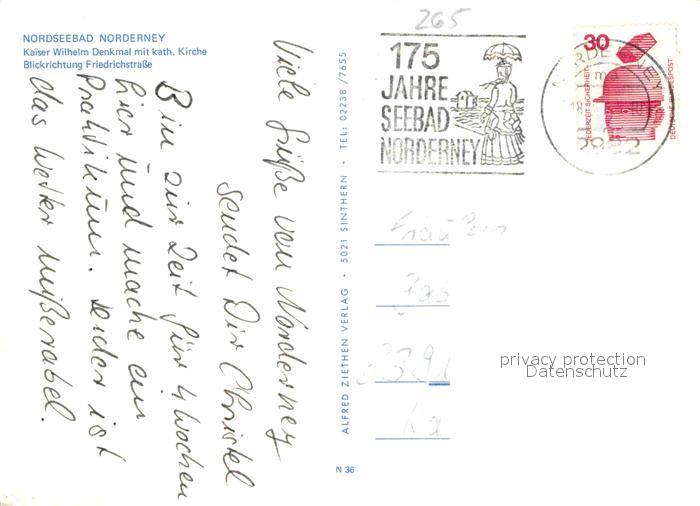 265
NORDSEEBAD NORDERNEY
Kaiser Wilhelm Denkmal mit kath. Kirche
Blickrichtung Friedrichstraße
Viele Grüße von Norderney
sendet Dir Christel
Bin zur Zeit für 4 Wochen
hier und mache ein
Praktikum. Leider ist
das Wetter mißerabel.
ALFRED ZIETHEN VERLAG · 5021 SINTHERN · TEL: 02238/7655
N 36
175
JAHRE
SEEBAD
NORDERNEY
30
JEDERZEIT SICHERHEIT
DEUTSCHE BUNDESPOST
NORDERNEY
2982
Frau
privacy protection
Datenschutz